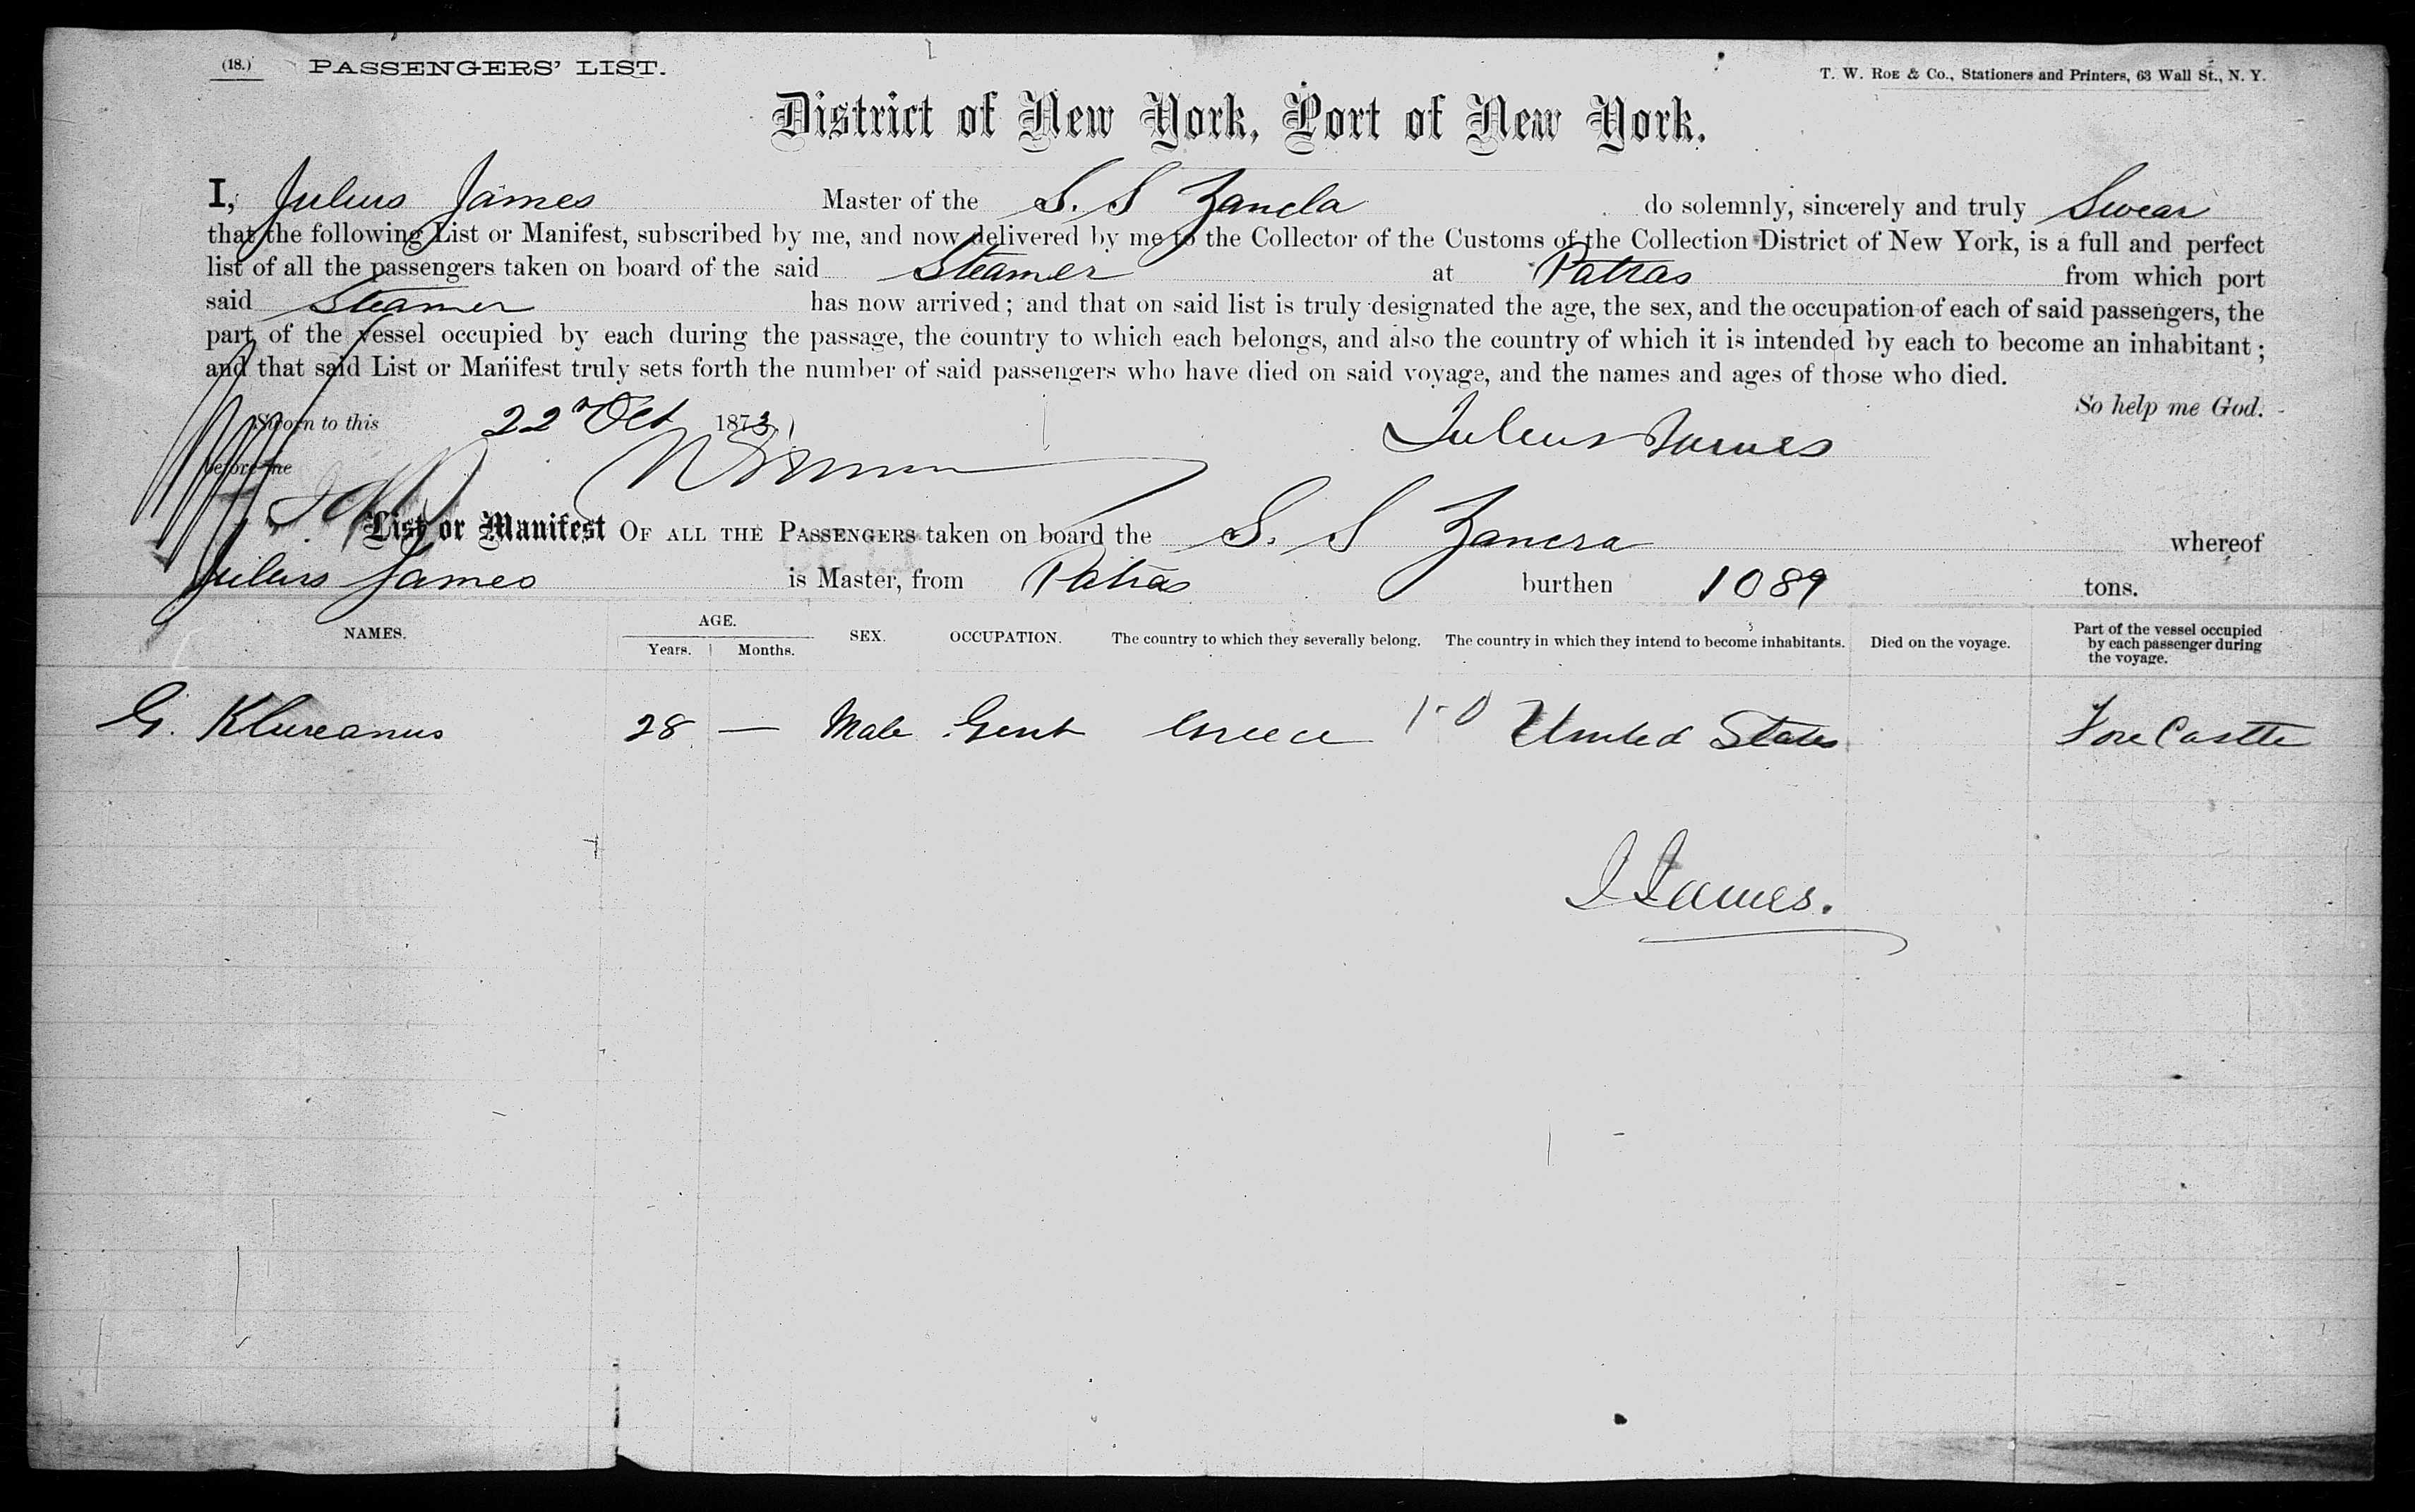 (18.) PASSENGERS' LIST. T. W. ROE & Co., Stationers and Printers, 63 Wall St., N. Y.
District of New York, Port of New York.
I, Julius James Master of the S. S do solemnly, sincerely and truly Swear
that the following List or Manifest, subscribed by me, and now delivered by me to the Collector of the Customs of the Collection District of New York, is a full and perfect
list of all the passengers taken on board of the said Steamer at Patras from which port
said Steamer has now arrived; and that on said list is truly designated the age, the sex, and the occupation of each of said passengers, the
part of the vessel occupied by each during the passage, the country to which each belongs, and also the country of which it is intended by each to become an inhabitant;
and that said List or Manifest truly sets forth the number of said passengers who have died on said voyage, and the names and ages of those who died.
So help me God.
Sworn to this 22nd Oct 1873 Julius James
before me
List or Manifest OF ALL THE PASSENGERS taken on board the S. S whereof
Julius James is Master, from Patras burthen 1089 tons.
NAMES. AGE. Years. Months. SEX. OCCUPATION. The country to which they severally belong. The country in which they intend to become inhabitants. Died on the voyage. Part of the vessel occupied by each passenger during the voyage.
G. 28 — Male Gent Greece United States Fore Castle
J James.